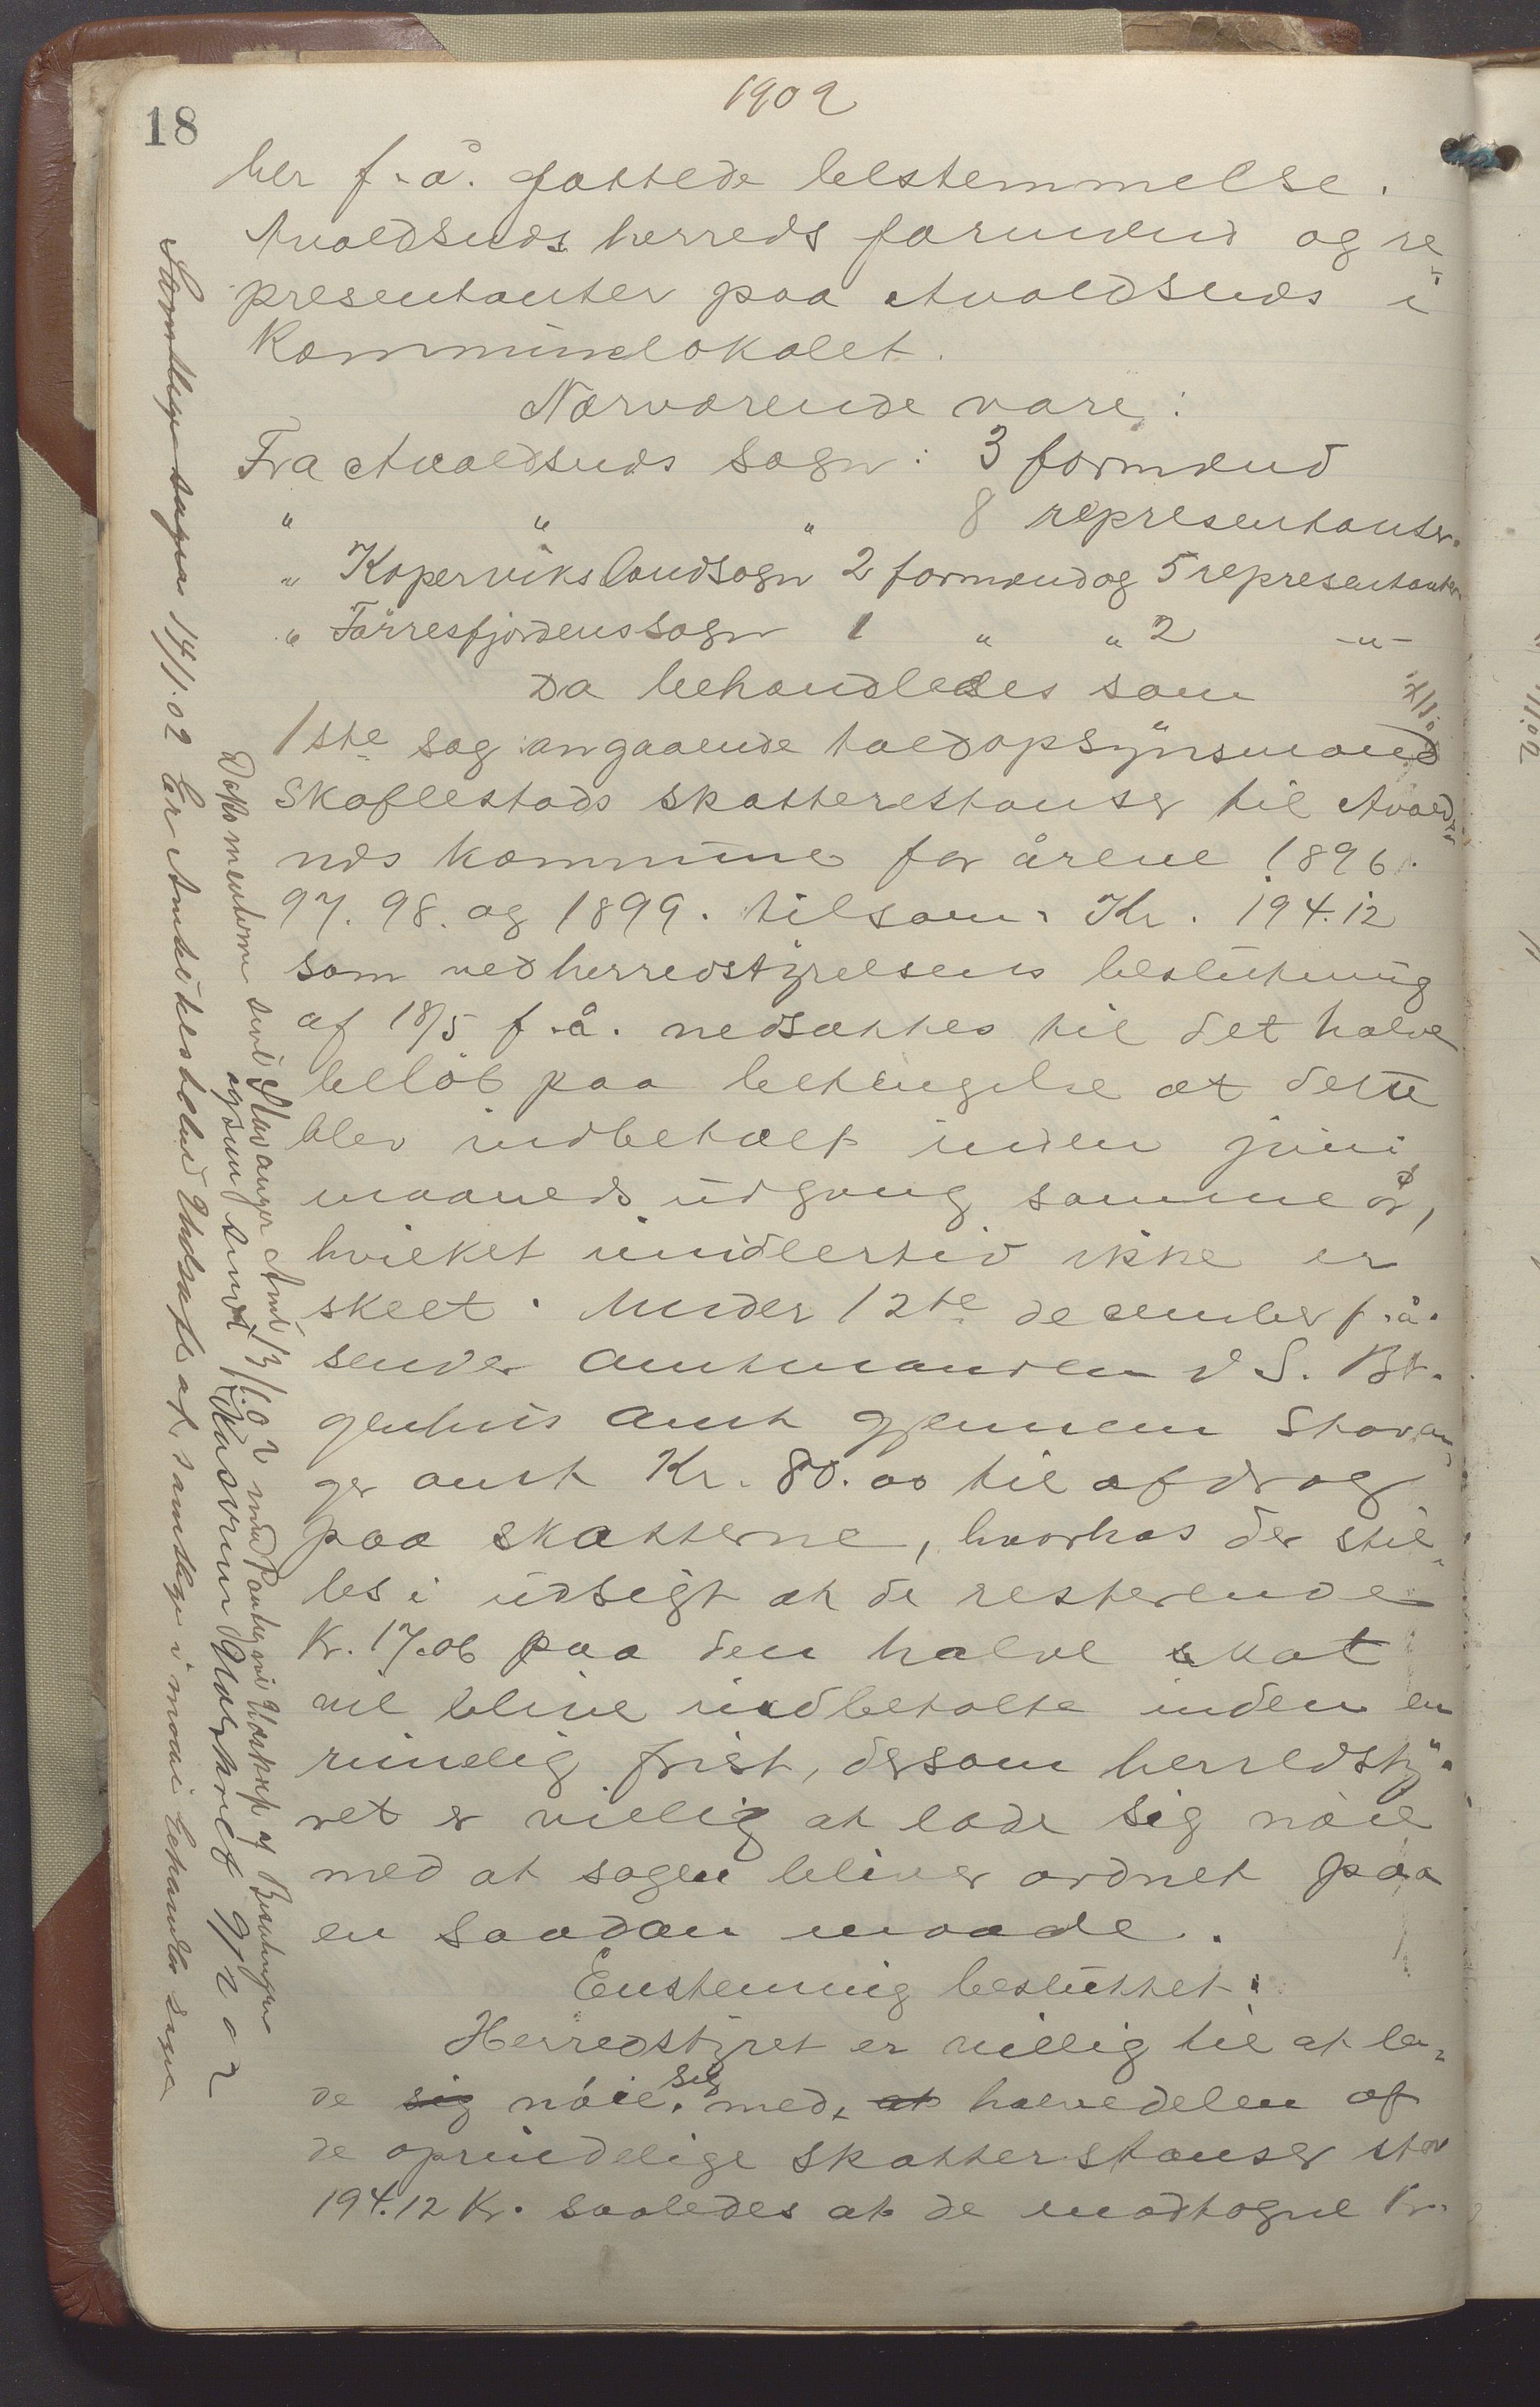 1902
18
ber f. å. fattede bestemmelse.
Avaldsnds herreds formænd og re
presentanter paa Avaldsnds i
kommunelokalet.
Nærværende vare:
Fra Avaldsnds sogn: 3 formænd
" " " 8 representanter.
" Kopervikslandsogn 2 formænd og 5 representanter
" Førresfjordenssogn 1 " " 2 -"-
Da behandledes som
1ste sag angaaende toldopsynsmand
Skaflestads skatterestanser til Avalds
nds kommune for årene 1896.
97. 98. og 1899. tilsam. Kr. 194.12
som ved herredstyrelsens beslutning
af 18/5 f. å. nedsattes til det halve
beløb paa betingelse at dette
blev indbetalt inden juni
maaneds udgang samme år,
hvilket imidlertid ikke er
skeet. Under 12te december f. å.
sender amtmanden i S. Be.
genhus amt gjennem Stavan
ger amt Kr. 80.00 til afdrag
paa skatterne, hvorhos der stil
les i udsigt at de resterende
Kr. 17.06 paa den halve skat
vil blive indbetalte inden en
rimelig frist, dersom herredsty
ret er villig at lade sig nøie
med at sagen bliver ordnet paa
en saadan maade.
Enstemmig besluttet:
Herredstyret er villig til at la
de sig nøie sig med at halvedelen af
de oprindelige skatterstanser stor
194.12 Kr. saaledes at de modtagne Kr.
Samtlige sager 14/1.02 Er Amtet tilsendt Udskrift af samtlige i møde behandlede sager
Dokumenterne sendt Stavanger Amt 13/1.02 med Udskrift af Beslutningen
ogsun sendt Udskrift 9/2 02